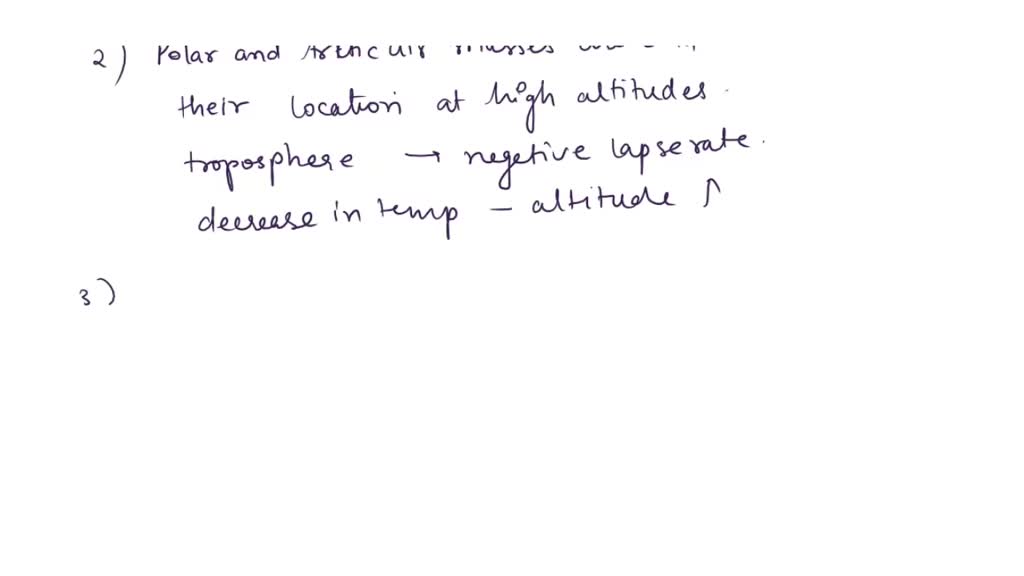 2) Polar and
their location at high altitudes.
troposphere → negetive lapse rate.
decrease in temp – altitude ↑
3)